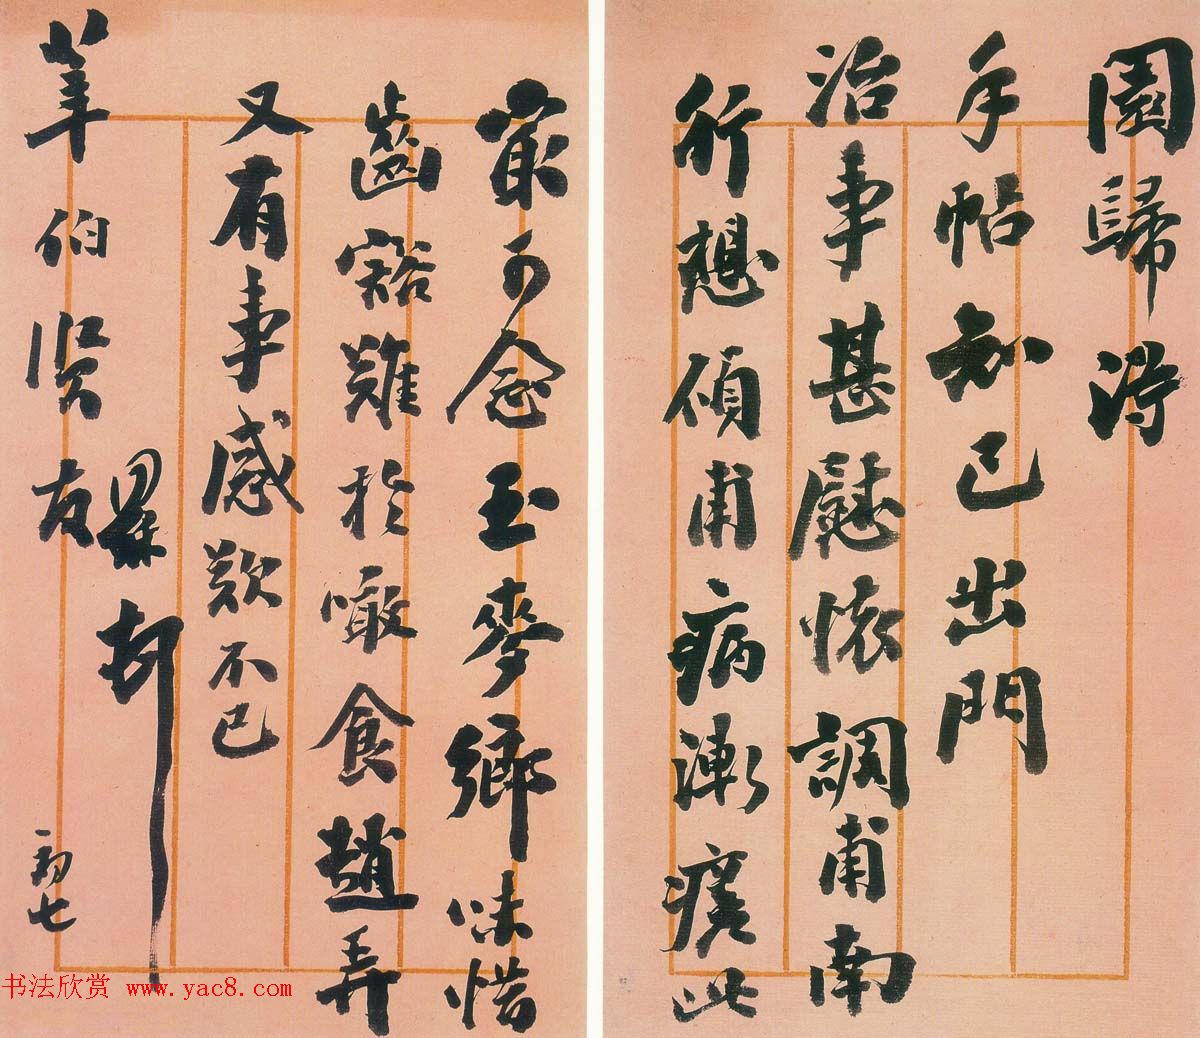 園歸得
手帖知已出門
治事甚慰懷調甫南
行想碩甫病漸瘥此
最可念玉麥鄉味惜
齒豁難於噉食趙弄
又有事感歎不已
莘伯賢友
初七
书法欣赏 www.yac8.com